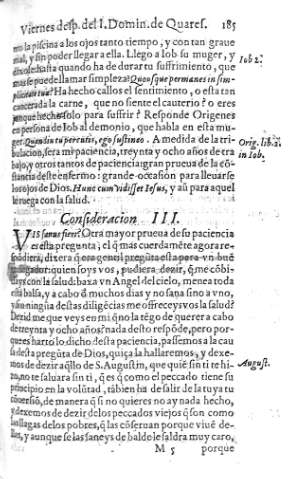 Viernes desp. del I. Domin. de Quares. 185
ro la piscina a los ojos tanto tiempo, y con tan graue
mal, y sin poder llegar a ella. Llego a Iob su muger, y
dixole hasta quando ha de durar tu suffrimiento, que
mas se puede llamar simpleza? Quousque permanes in sim-
plicitate tua? Ha hecho callos el sentimiento, o esta tan
cancerada la carne, que no siente el cauterio? o eres
que hecho solo para suffrir? Responde Origenes
en persona de Iob al demonio, que habla en esta mu-
ger. Quandiu tu percutis, ego sustineo. A medida de la tri-
bulacion, sera mi paciencia, treynta y ocho años de tra
bajo, y otros tantos de paciencia: gran prueua de la cõs-
tancia deste enfermo: grande ocasion para lleuarse
los ojos de Dios. Hunc cum vidisset Iesus, y aũ para aquel
le ruega con la salud.
Iob 2.
Orig. lib. 2.
in Iob.
Consideracion III.
VIS sanus fieri? Otra mayor prueua de su paciencia
es esta pregũta; el q̃ mas cuerdamẽte agora res-
põdiera, dixera q̃ era gentil pregũta esta para vn buẽ
quien soys vos, pudiera dezir, q̃ me cõbi-
days con la salud: baxa vn Angel del cielo, menea toda
esta balsa, y a cabo d̃ muchos dias y no sana sino a vno,
y sin ninguna destas diligẽcias me offreceys vos la salud?
Dezid me que veys en mi q̃ no la tẽgo de querer a cabo
de treynta y ocho años? nada desto respõde, pero por-
que es harto lo dicho desta paciencia, passemos a la cau
sa desta pregũta de Dios, quiça la hallaremos, y dexe-
mos de dezir aq̃llo de S. Augustin, que quiẽ sin ti te hi-
zo, no te saluara sin ti, q̃ es q̃ como el peccado tiene su
principio en la volũtad, tãbien ha de salir de la tuya tu
cõuersiõ, de manera q̃ si no quieres no ay nada hecho,
y dexemos de dezir de los peccados viejos q̃ son como
las llagas de los pobres, q̃ las cõseruan porque viuẽ de-
llas, y aunque se las saneys de balde le saldra muy caro,
August.
M 5 porque